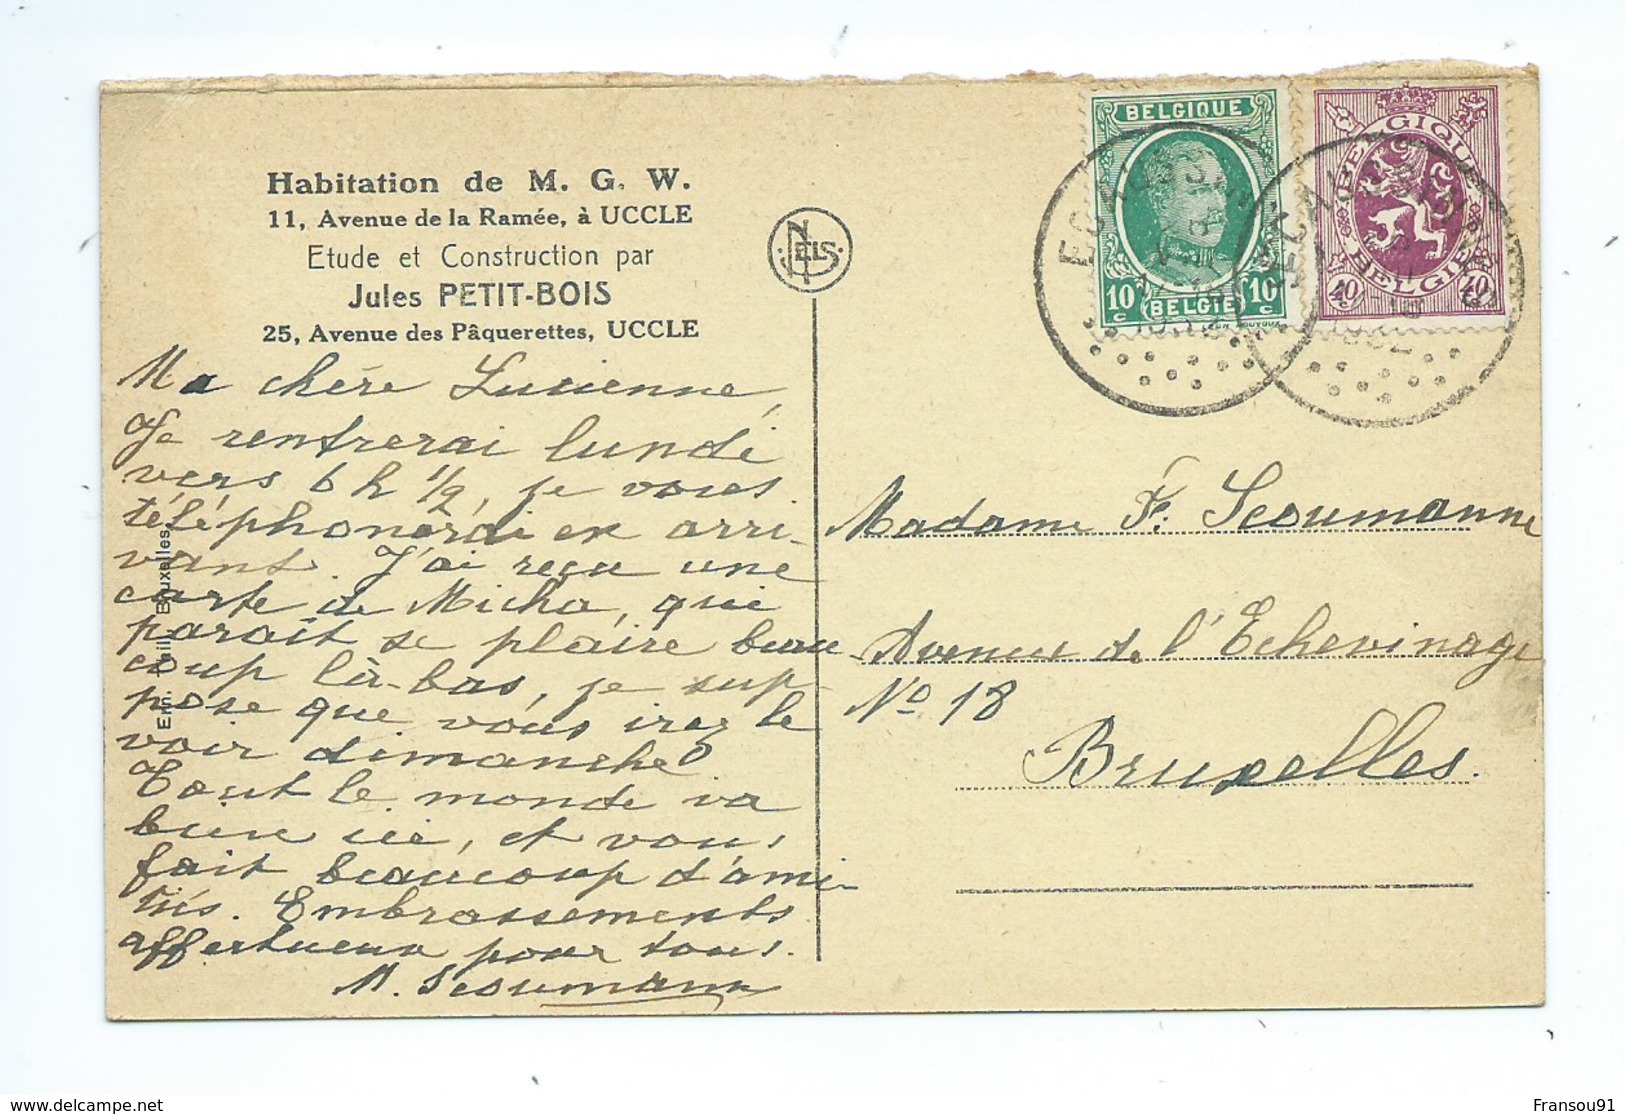 Habitation de M. G. W.
11, Avenue de la Ramée, à UCCLE
Etude et Construction par
Jules PETIT-BOIS
25, Avenue des Pâquerettes, UCCLE
NELS
BELGIQUE
10 c BELGIE 10 c
BELGIQUE
40 BELGIE 40
ECAUSSI
1932
Ma chère Lucienne,
Je rentrerai lundi
vers 6 h 1/2, je vous
téléphonerai en arri-
vant. J'ai reçu une
carte de Micha, qui
paraît se plaire beau-
coup là-bas, je sup-
pose que vous irez le
voir dimanche?
Tout le monde va
bien ici, et vous
fait beaucoup d'ami-
tiés. Embrassements
affectueux pour tous.
M. Seoumanne
Madame F. Seoumanne
Avenue de l'Echevinage
No 18
Bruxelles.
Ern. Thill, Bruxelles
delcampe.net
Fransou91